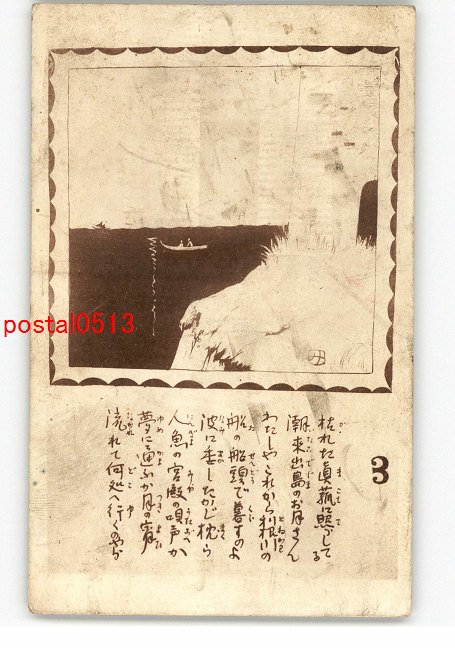 postal0513
3
枯れた眞菰に照してる
潮来出島のお月さん
わたしやこれから利根川の
船の船頭で暮すのよ
波に委したかぢ枕ら
人魚の宮殿の唄声か
夢に通ふか月の宵
流れて何処へ行くのやら